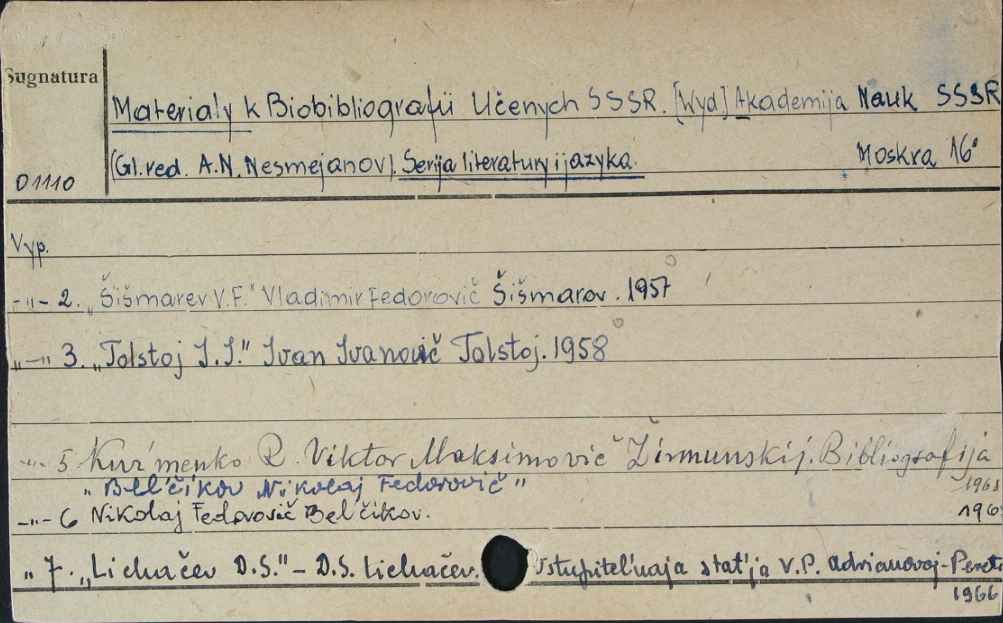 Sygnatura
Materialy k Biobibliografii Učenych SSSR. [Wyd] Akademija Nauk SSSR
(Gl. red. A.N. Nesmejanov). Serija literatury i jazyka. Moskva 16°
01110
Vyp.
-"- 2. „Šišmarev V.F." Vladimir Fedorovič Šišmarov. 1957
"-" 3. „Tolstoj I.I." Ivan Ivanovič Tolstoj. 1958
-"- 5 Kuz'menko R. Viktor Maksimovič Žirmunskij. Bibliografija
" Bel'čikov Nikolaj Fedorovič "
-"- 6 Nikolaj Fedorovič Bel'čikov.
" 7. „Lichačev D.S." - D.S. Lichačev. Vstupitel'naja stat'ja V.P. Adrianovoj-Peret
1966